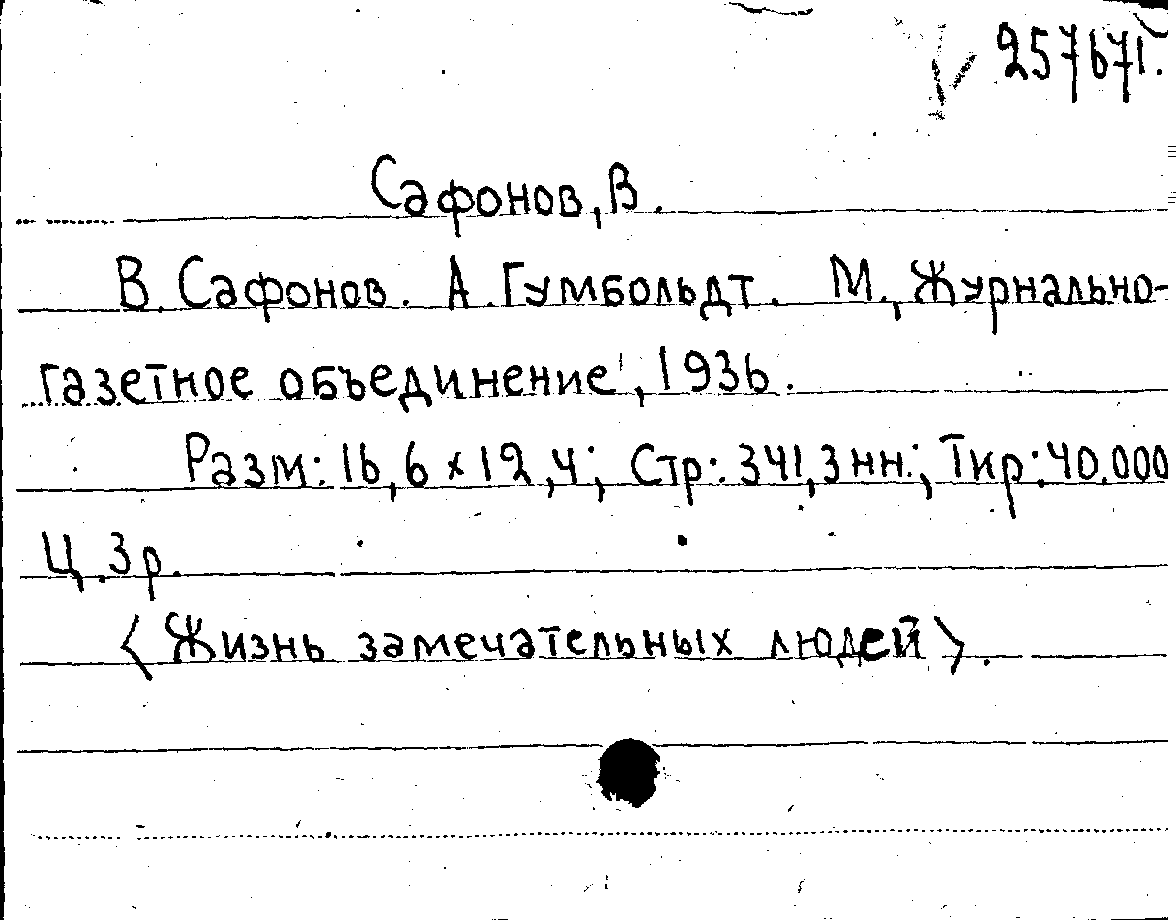 257671.
Сафонов, В.
В. Сафонов. А. Гумбольдт. М., Журнально-
газетное объединение, 1936.
Разм: 16,6 x 12,4; Стр: 341, 3 нн.; Тир: 40.000
Ц. 3 р.
〈Жизнь замечательных людей〉.